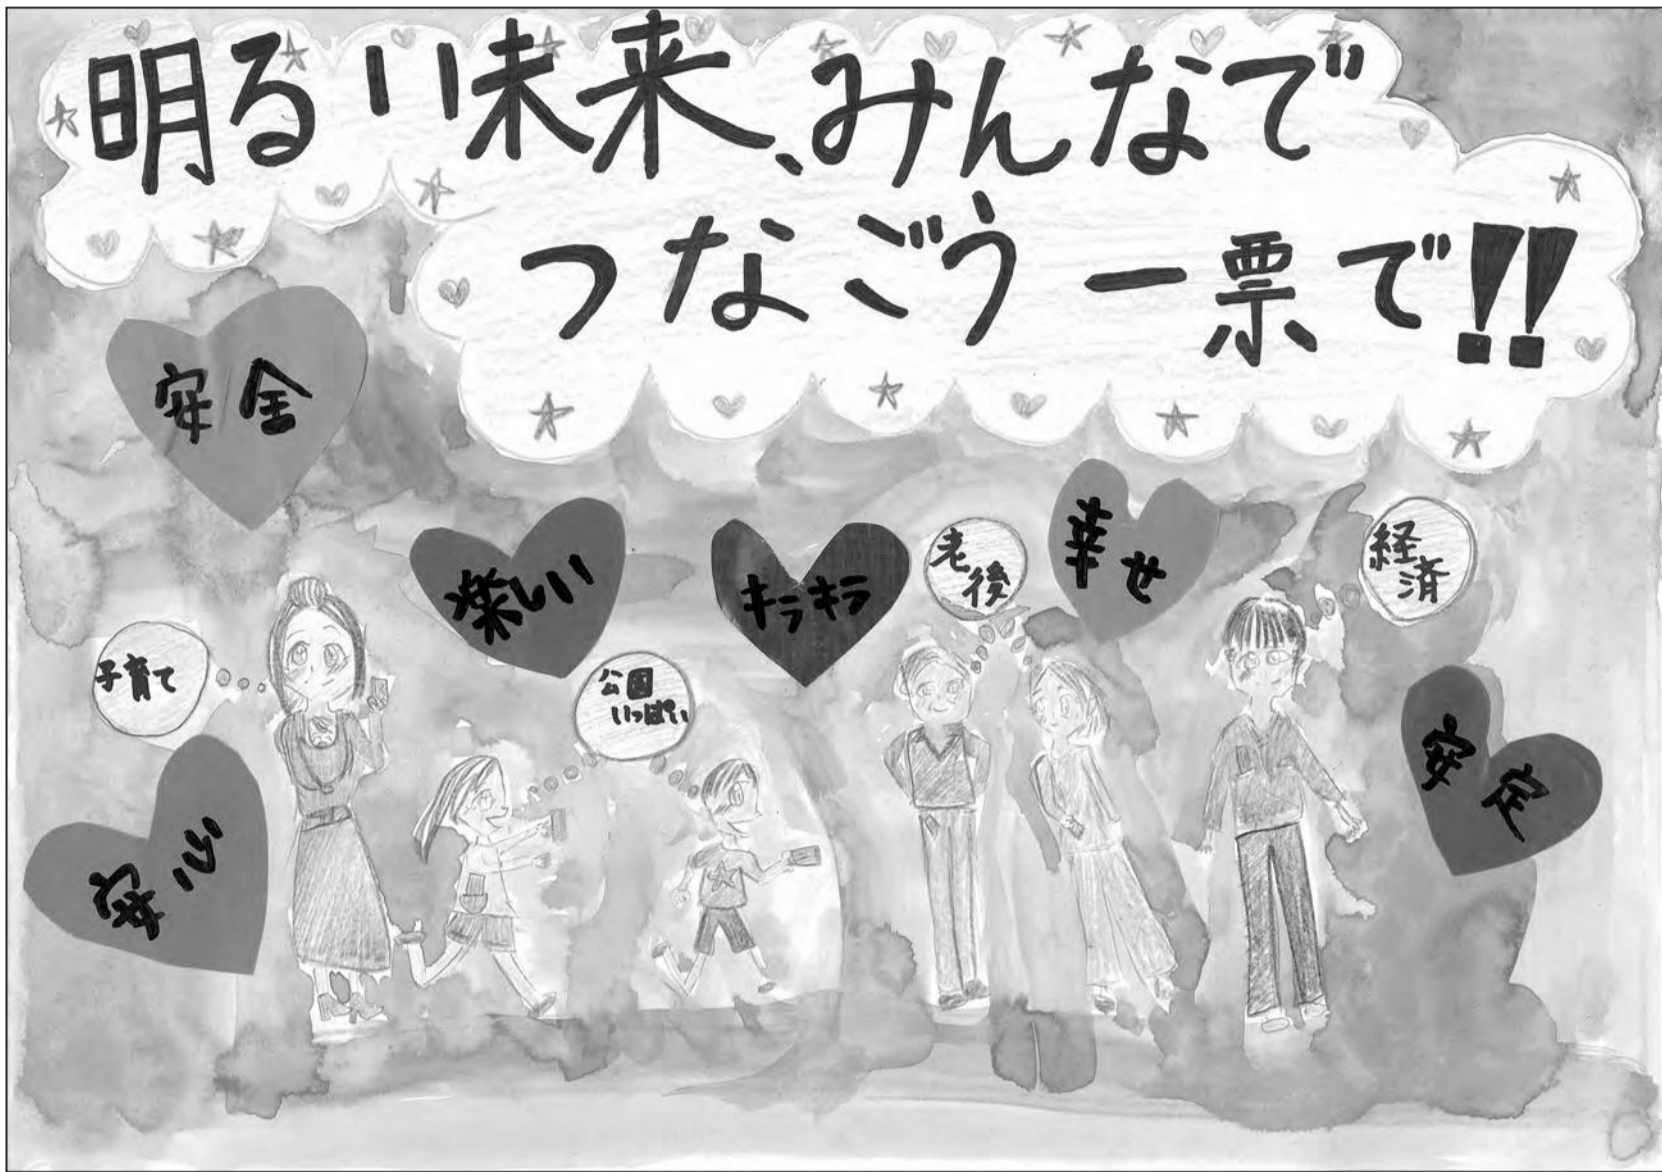 明るい未来、みんなで
つなごう一票で!!
安全
楽しい
キラキラ
老後
幸せ
経済
子育て
公園
いっぱい
安心
安定